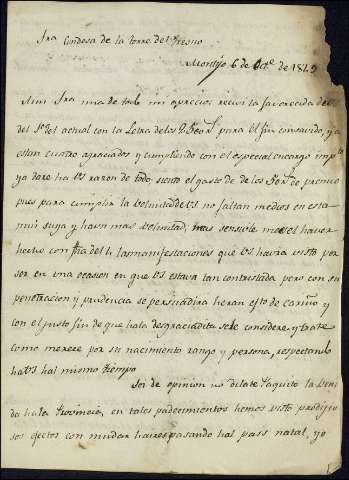 Sra Condesa de la torre del fresno
Montijo 6 de Octe. de 1815
Muy Sra mia de todo mi aprecio: recivi la favorecida de
del 5º del actual con la Letra de los para el fin consavido, ya
estan cuatro agraciados y cumpliendo con el especial encargo
ya dare ha Vs razon de todo; siento el gasto de de los de premio
pues para cumplir la voluntad de Vs no faltan medios en esta
mui suya y haun mas voluntad, mas sensible me es el haver
hecho con fha del 4 las manifestaciones que Vs havra visto por
ser en una ocasion en que Vs estava tan contristada pero con su
penetracion y prudencia se persuadira heran efto de cariño y
con el justo fin de que hala desgraciadita se le considere y trate
como merece por su nacimiento rango y persona, respectando
ha Vs hal mismo tiempo
Soi de opinion no dilate Paquito la veni
da hala Provincia, en tales padecimientos hemos visto prodijio
sos efectos con mudar haires pasando hal pais natal, yo